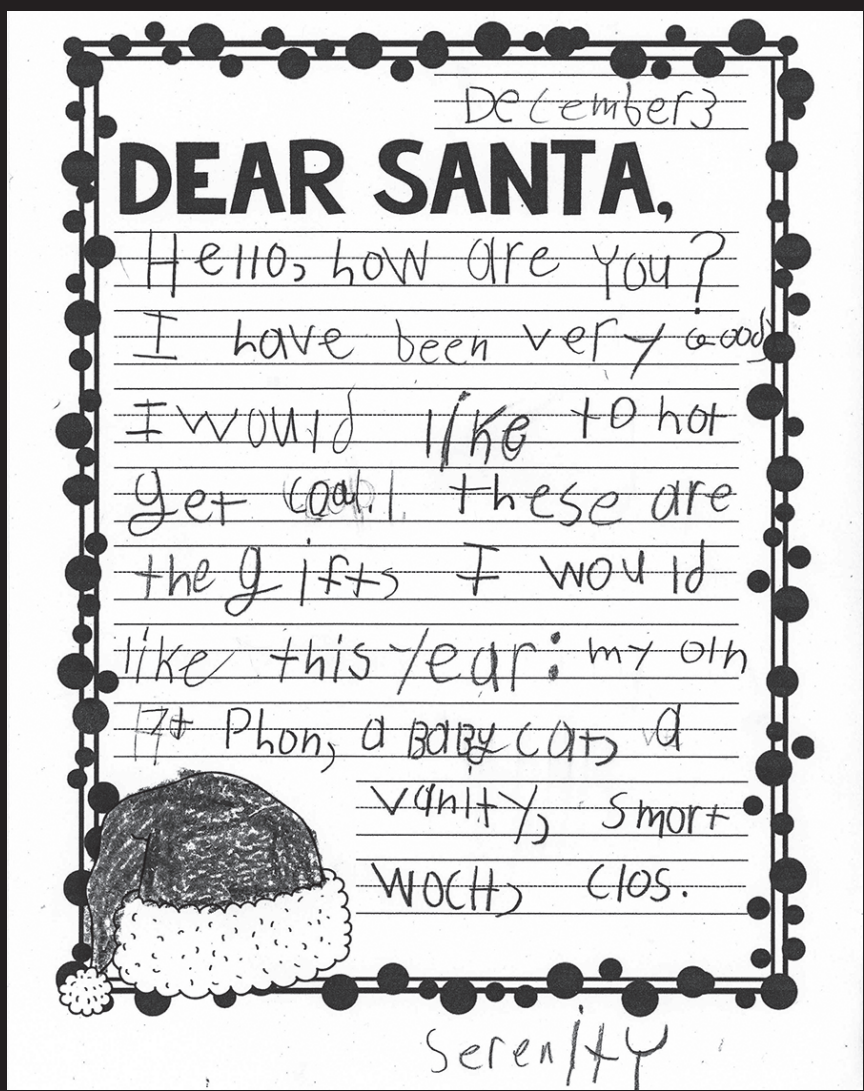 December 3
DEAR SANTA,
Hello, how are you?
I have been very Good
I would like to not
get coal. these are
the gifts I would
like this year: my oln
Phon, a BaBy cat, a
vanity, smort
woch, clos.
Serenity